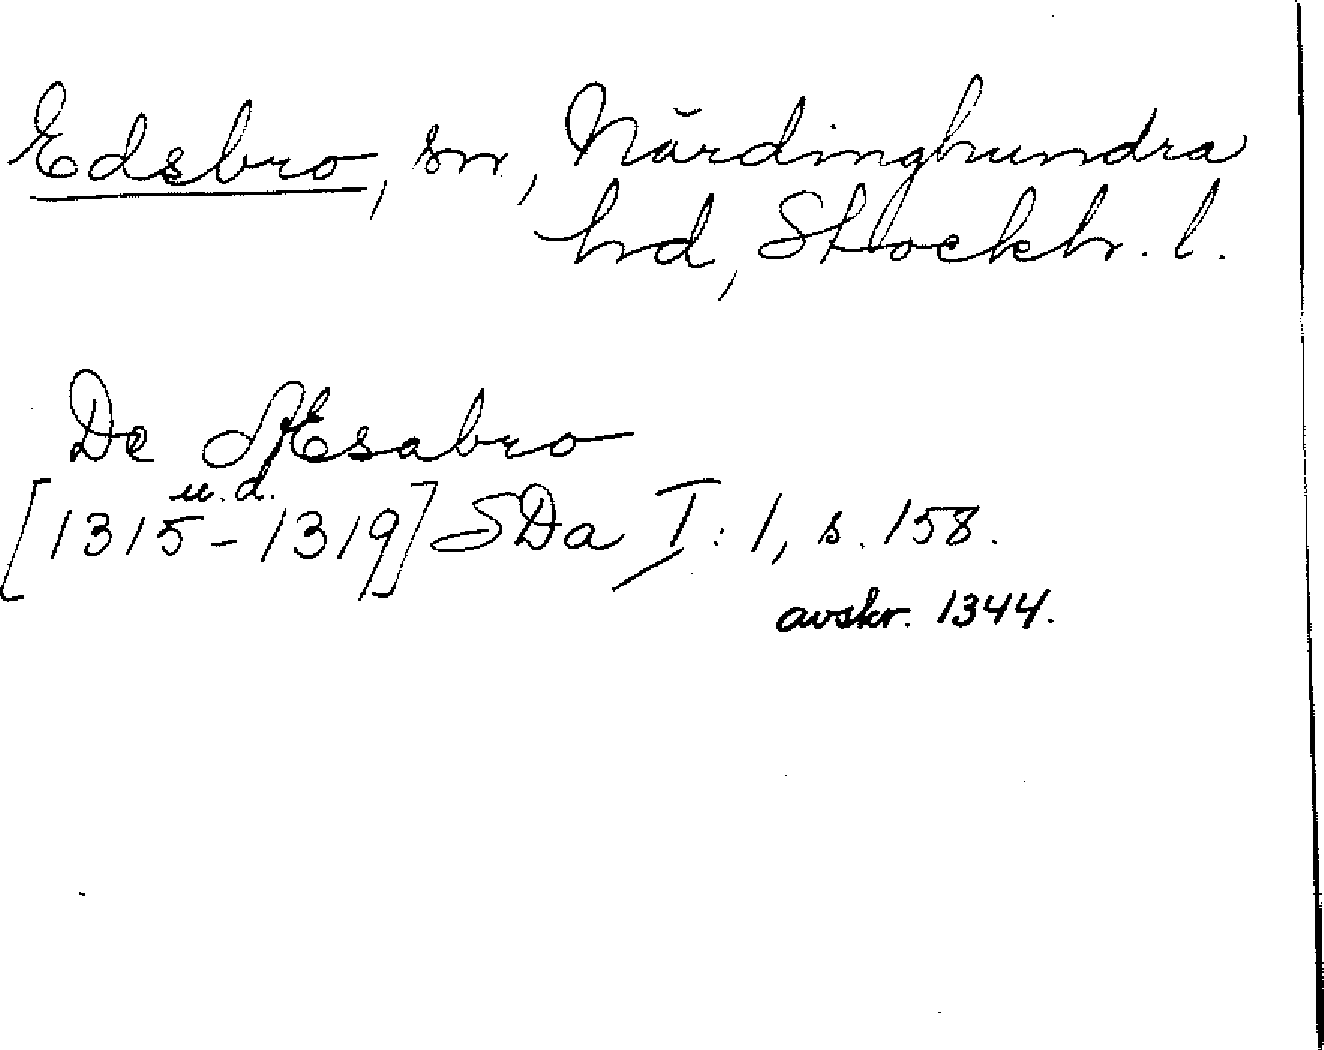 Edsbro, sn, Närdinghundra
hd, Stockh. l.
De Esabro
u. d.
[1315-1319] SDa I: 1, s. 158.
avskr. 1344.